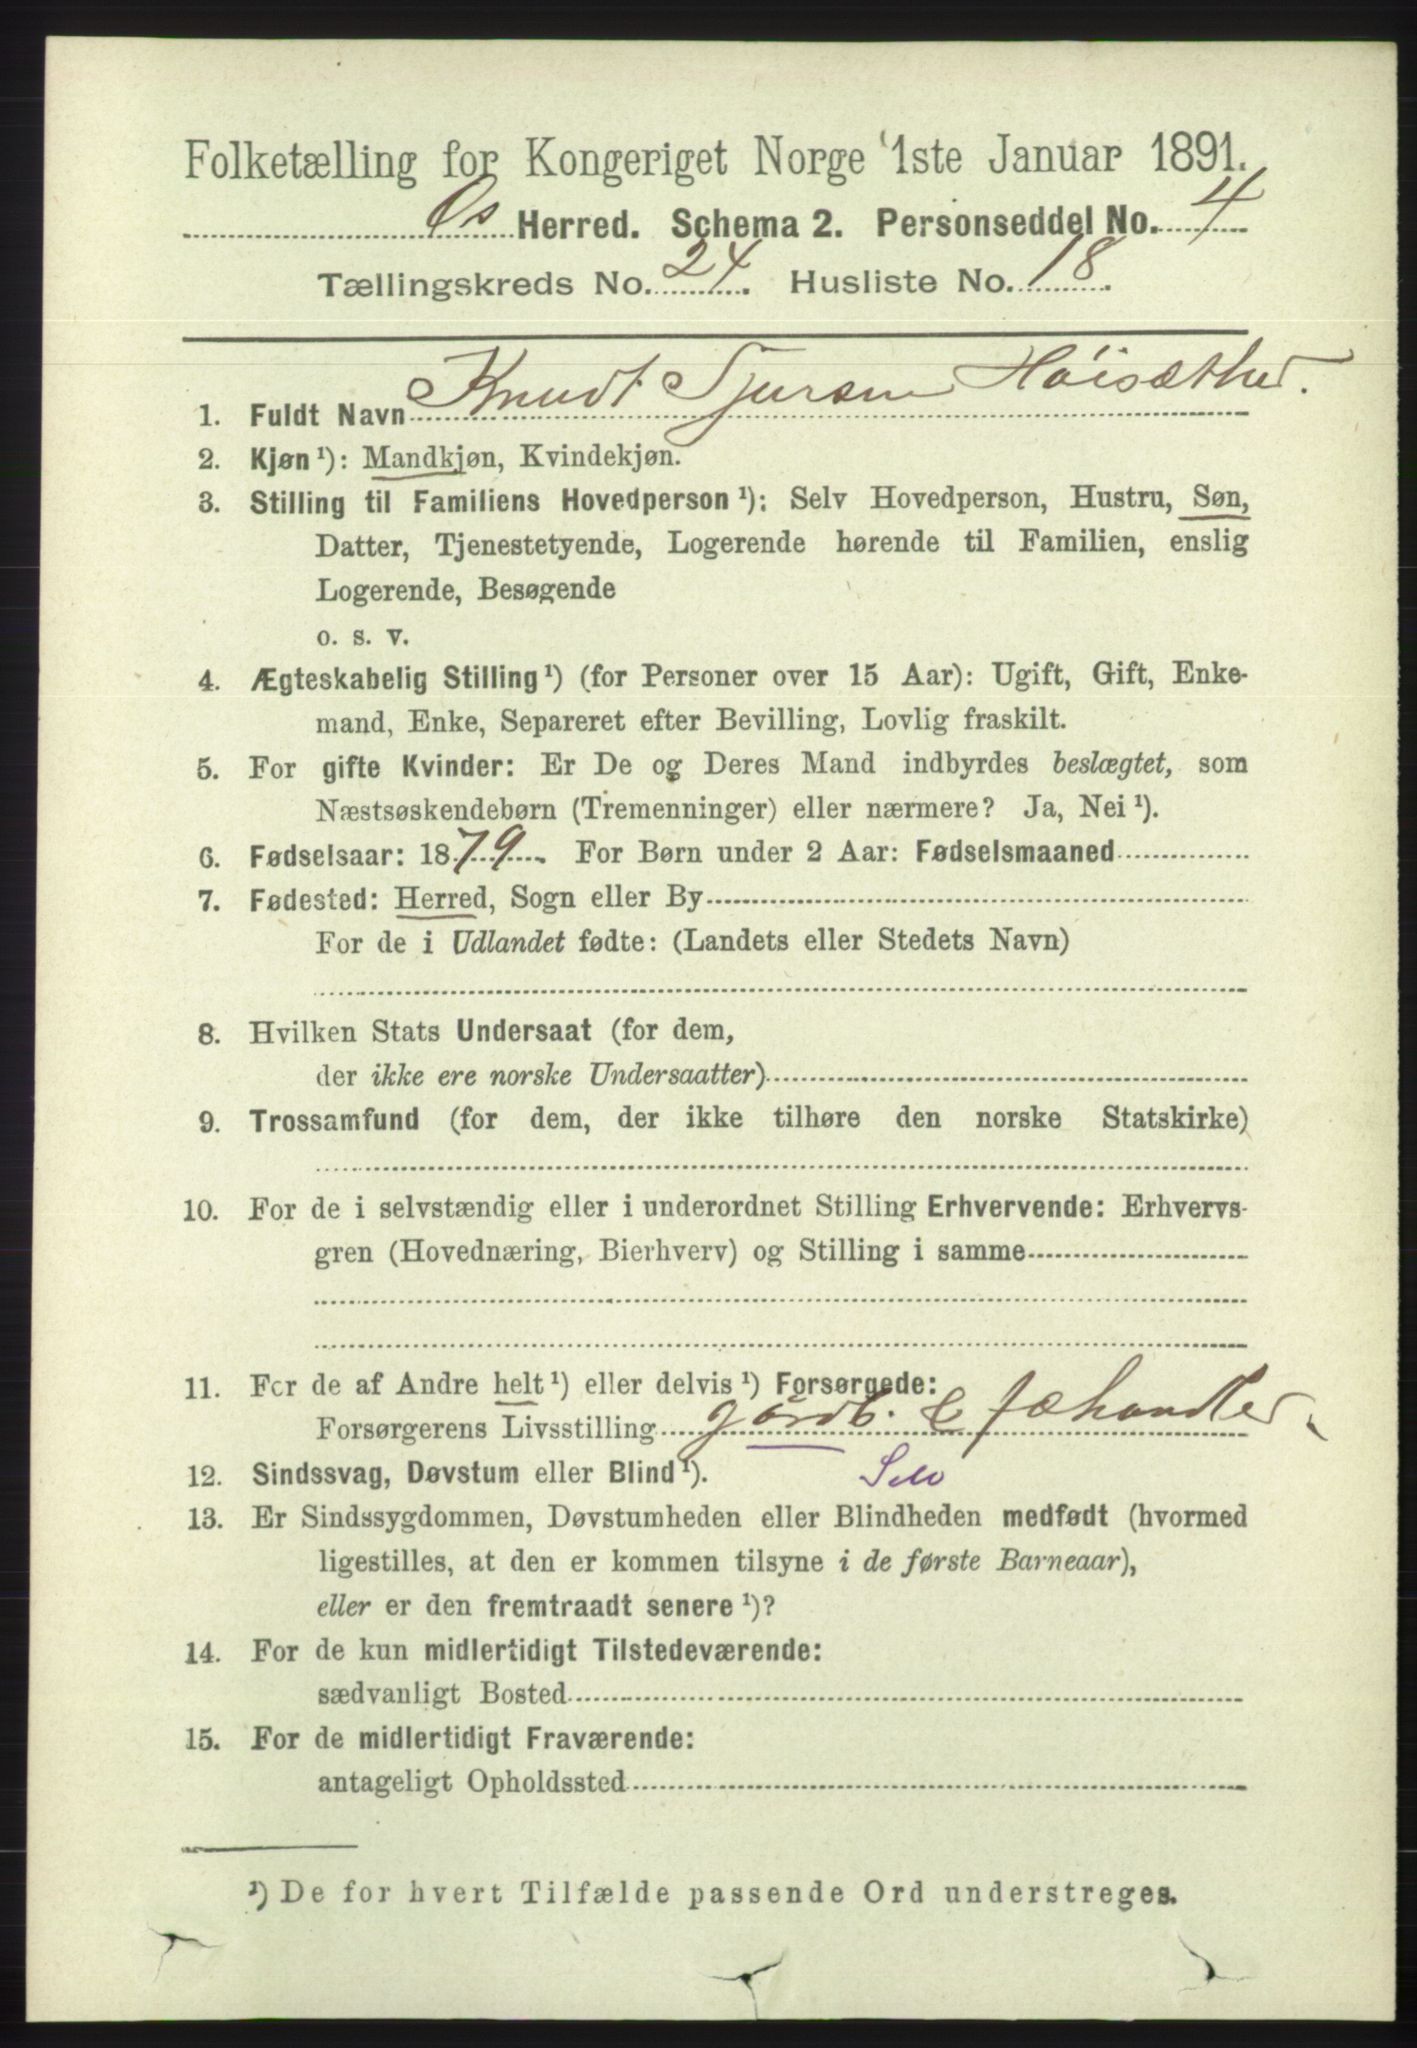 Folketælling for Kongeriget Norge 1ste Januar 1891.
Os Herred. Schema 2. Personseddel No. 4
Tællingskreds No. 24. Husliste No. 18.
1. Fuldt Navn Knudt Sjursen Höisæther.
2. Kjøn ¹): Mandkjøn, Kvindekjøn.
3. Stilling til Familiens Hovedperson ¹): Selv Hovedperson, Hustru, Søn,
Datter, Tjenestetyende, Logerende hørende til Familien, enslig
Logerende, Besøgende
o. s. v.
4. Ægteskabelig Stilling ¹) (for Personer over 15 Aar): Ugift, Gift, Enke-
mand, Enke, Separeret efter Bevilling, Lovlig fraskilt.
5. For gifte Kvinder: Er De og Deres Mand indbyrdes beslægtet, som
Næstsøskendebørn (Tremenninger) eller nærmere? Ja, Nei ¹).
6. Fødselsaar: 1879. For Børn under 2 Aar: Fødselsmaaned
7. Fødested: Herred, Sogn eller By
For de i Udlandet fødte: (Landets eller Stedets Navn)
8. Hvilken Stats Undersaat (for dem,
der ikke ere norske Undersaatter)
9. Trossamfund (for dem, der ikke tilhøre den norske Statskirke)
10. For de i selvstændig eller i underordnet Stilling Erhvervende: Erhvervs-
gren (Hovednæring, Bierhverv) og Stilling i samme
11. For de af Andre helt ¹) eller delvis ¹) Forsørgede:
Forsørgerens Livsstilling gårdb. & fæhandler.
12. Sindssvag, Døvstum eller Blind ¹). Selv
13. Er Sindssygdommen, Døvstumheden eller Blindheden medfødt (hvormed
ligestilles, at den er kommen tilsyne i de første Barneaar),
eller er den fremtraadt senere ¹)?
14. For de kun midlertidigt Tilstedeværende:
sædvanligt Bosted
15. For de midlertidigt Fraværende:
antageligt Opholdssted
¹) De for hvert Tilfælde passende Ord understreges.